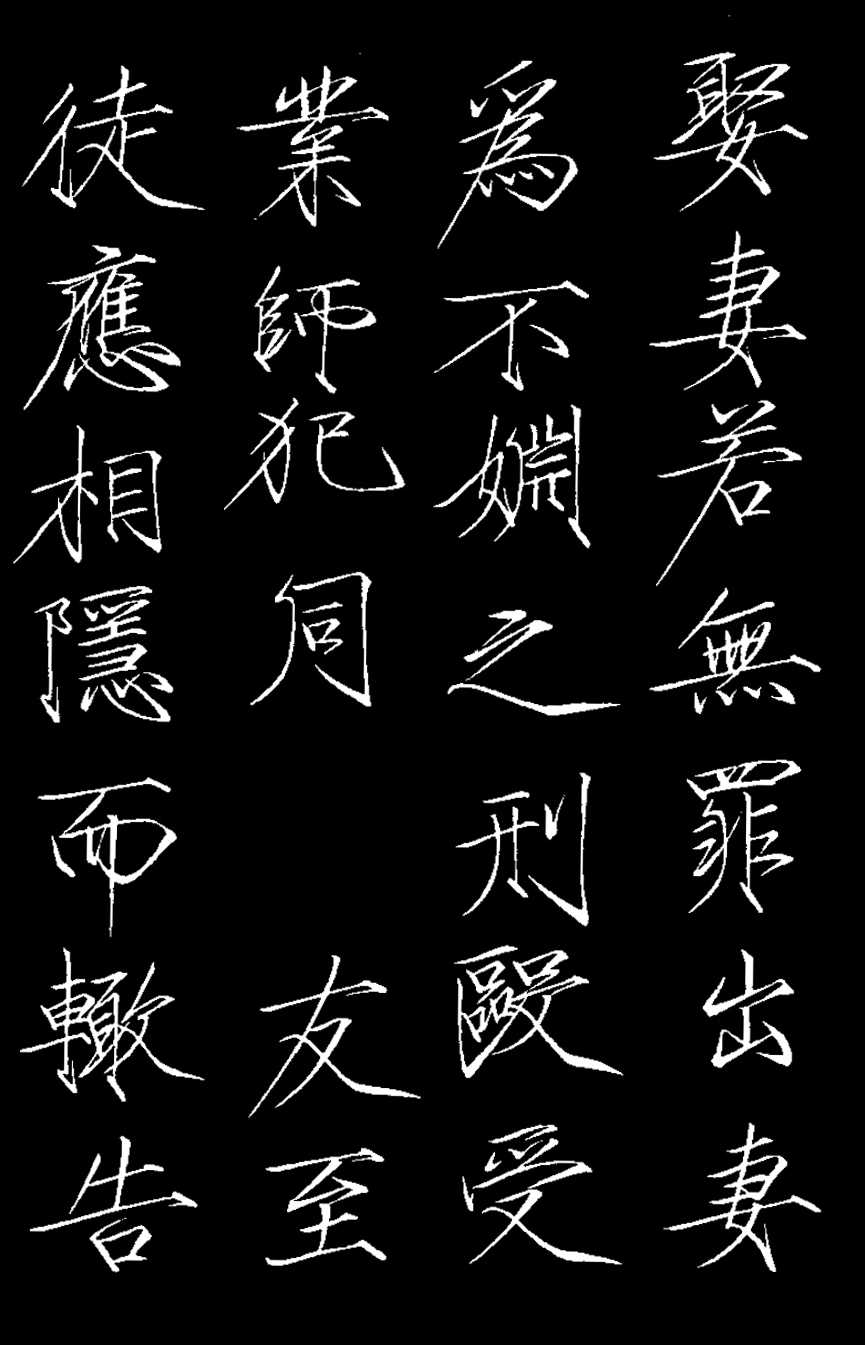 娶妻若無罪出妻
爲不嫺之刑毆受
業師犯同友至
徒應相隱而轍告